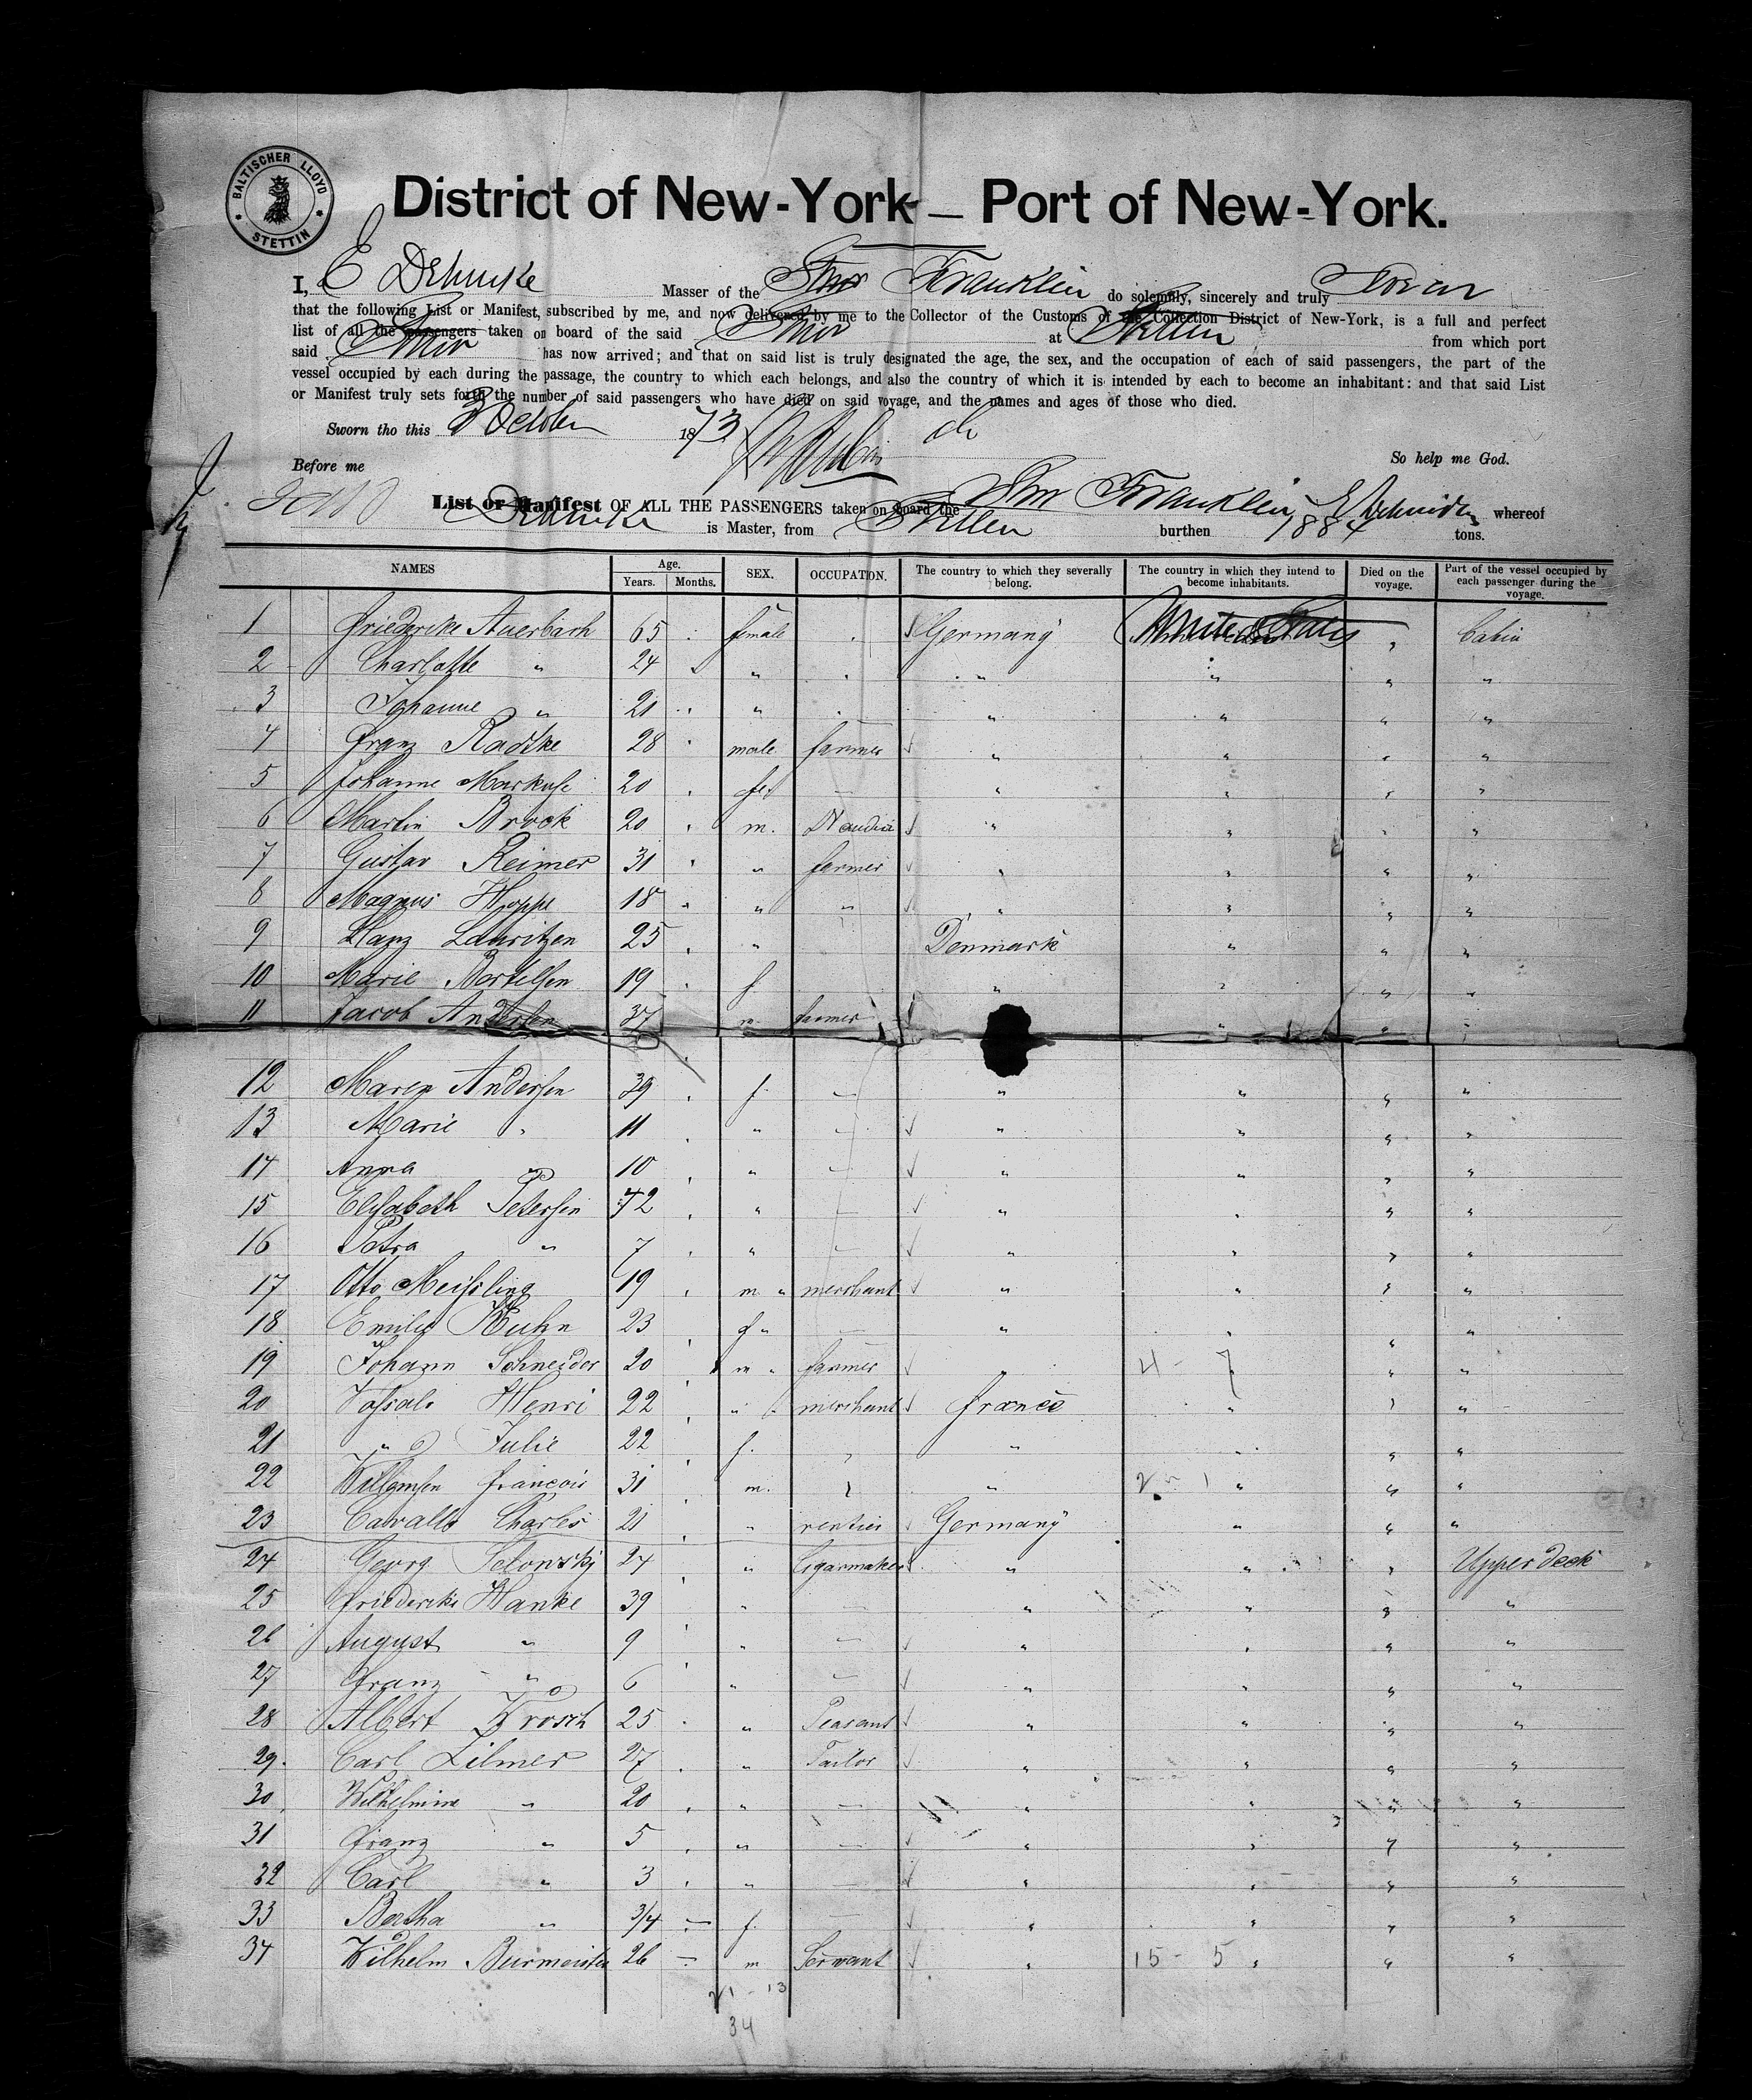 BALTISCHER LLOYD
STETTIN
District of New-York — Port of New-York.
I, E Dehmke Masser of the Stmr Franklin do solemnly, sincerely and truly swear
that the following List or Manifest, subscribed by me, and now delivered by me to the Collector of the Customs of the Collection District of New-York, is a full and perfect
list of all the passengers taken on board of the said Stmr at Stettin from which port
said Stmr has now arrived; and that on said list is truly designated the age, the sex, and the occupation of each of said passengers, the part of the
vessel occupied by each during the passage, the country to which each belongs, and also the country of which it is intended by each to become an inhabitant: and that said List
or Manifest truly sets forth the number of said passengers who have died on said voyage, and the names and ages of those who died.
Sworn tho this 3 October 1873
Before me So help me God.
List or Manifest OF ALL THE PASSENGERS taken on board the Stmr Franklin, whereof
Dehmke is Master, from Stettin burthen 1884 tons.
NAMES Age. Years. Months. SEX. OCCUPATION. The country to which they severally belong. The country in which they intend to become inhabitants. Died on the voyage. Part of the vessel occupied by each passenger during the voyage.
1 Friedericke Auerbach 65 female Germany United States " Cabin
2 Charlotte " 24 " " " " "
3 Johanne " 21 " " " " "
4 Franz Radtke 28 male farmer " " " "
5 Johanne Markuse 20 fe. — " " " "
6 Martin Brock 20 m. " " " "
7 Gustav Reimer 31 " farmer " " " "
8 Magnus Hoppe 18 " " " " " "
9 Hanz Lauritzen 25 " Denmark " " "
10 Marie Bertelsen 19 f " " " "
11 Jacob Andersen 37 m. farmer " " "
12 Maren Andersen 39 f. — " " " "
13 Marie " 11 " — " " " "
14 Anna " 10 " — " " " "
15 Elisabeth Petersen 42 " — " " " "
16 Petra " 7 " — " " " "
17 Otto Meissling 19 m " merchant " " " "
18 Emilie Kuhn 23 f " — " " " "
19 Johann Schneider 20 m " farmer " 4 - 7 " "
20 Henri 22 " merchant France " " "
21 " Julie 22 f. " " " " "
22 Willamsen François 31 m. " " 2 - 1 " " "
23 Cavallo Charles 21 " rentier Germany " " "
24 Georg Selonskj 24 " Cigarmaker " " " Upper deck
25 Friedericke Hanke 39 " — " " " "
26 August " 9 " — " " " "
27 Franz " 6 " — " " " "
28 Albert Krosch 25 " Peasant " " " "
29. Carl Lilmer 27 " Tailor " " " "
30 Wilhelmine " 20 " — " " " "
31 Franz " 5 " — " " " "
32 Carl " 3 " — " " " "
33 Bertha " 3/4 — f. " " " "
34 Wilhelm Burmeister 26 — m Servant " 15 - 5 " " "
21 - 13
34